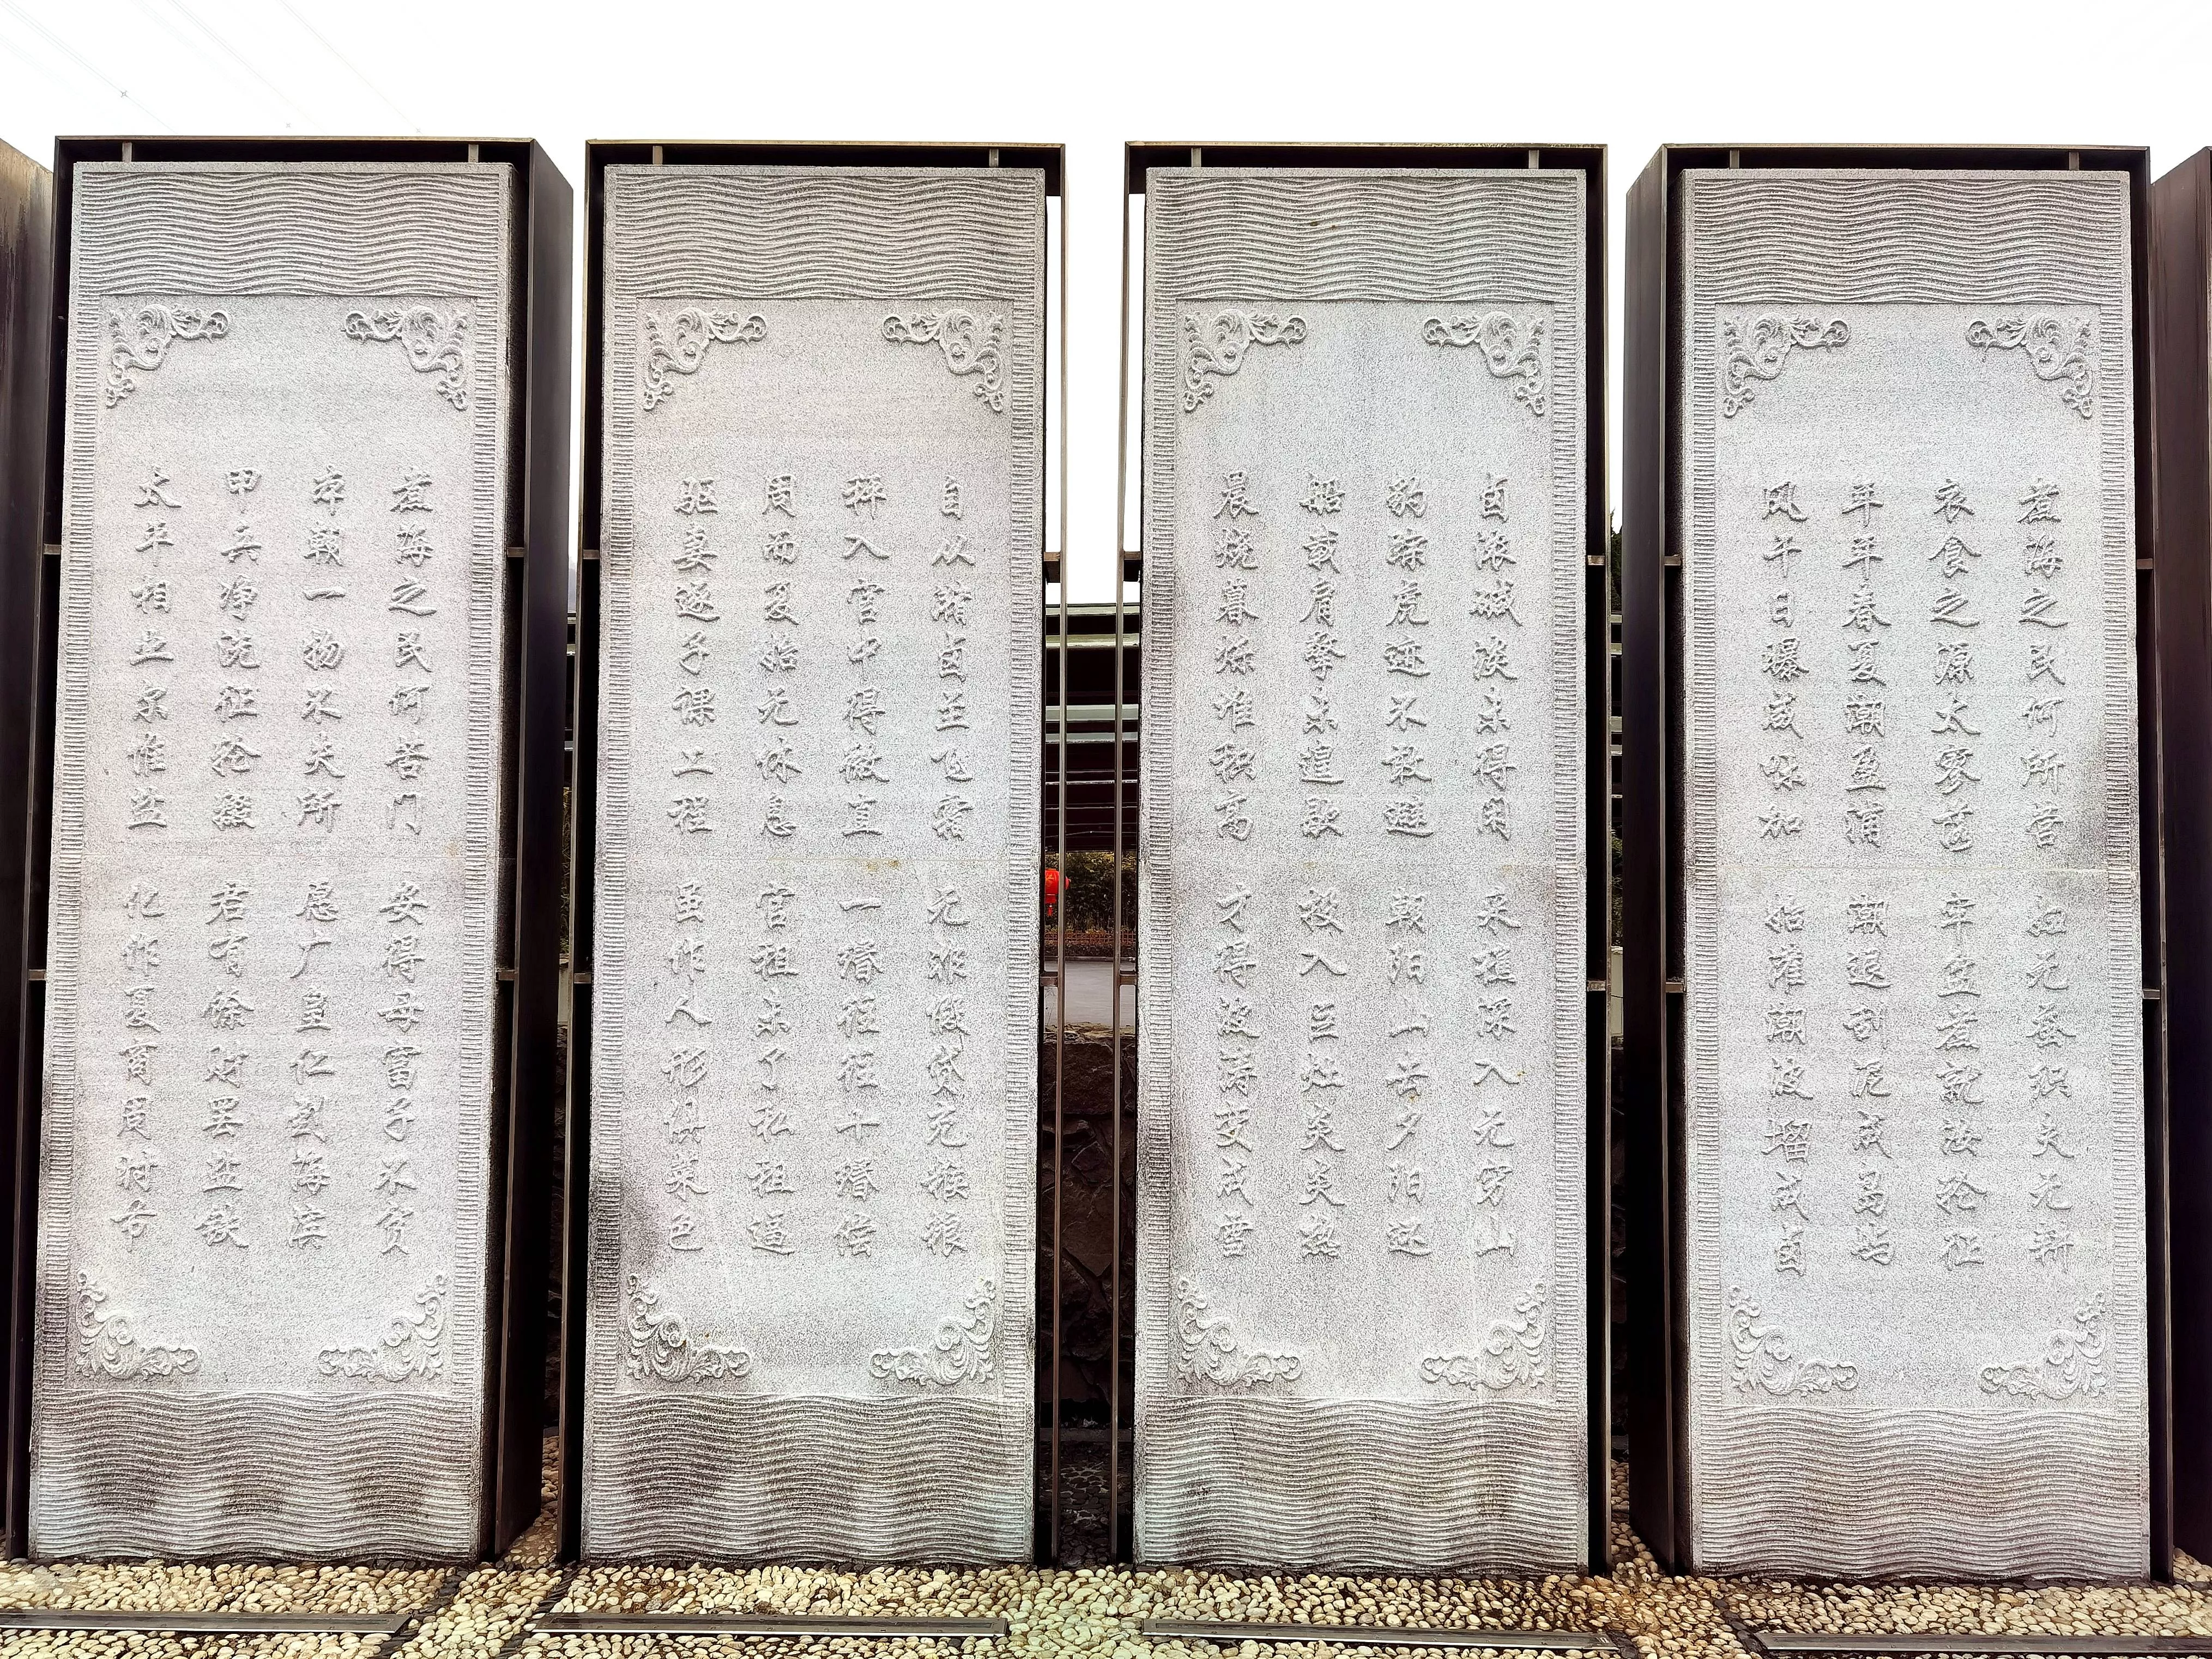 煮海之民何所营 妇无蚕织夫无耕
衣食之源太寥落 牢盆煮就汝轮征
年年春夏潮盈浦 潮退刮泥成岛屿
风干日曝咸味加 始灌潮波塯成卤
卤浓碱淡未得闲 采樵深入无穷山
豹踪虎迹不敢避 朝阳山去夕阳还
船载肩擎未遑歇 投入巨灶炎炎热
晨烧暮烁堆积高 才得波涛变成雪
自从潴卤至飞霜 无非假贷充糇粮
秤入官中得微直 一缗往往十缗偿
周而复始无休息 官租未了私租逼
驱妻逐子课工程 虽作人形俱菜色
煮海之民何苦门 安得母富子不贫
本朝一物不失所 愿广皇仁到海滨
甲兵净洗征轮辍 君有余财罢盐铁
太平相业尔惟盐 化作夏商周时节